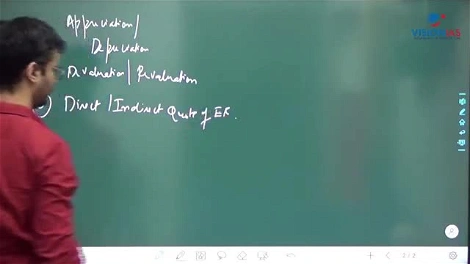 Appreciation/
Depreciation
Devaluation/Revaluation
) Direct/Indirect Quote of ER.
2/2